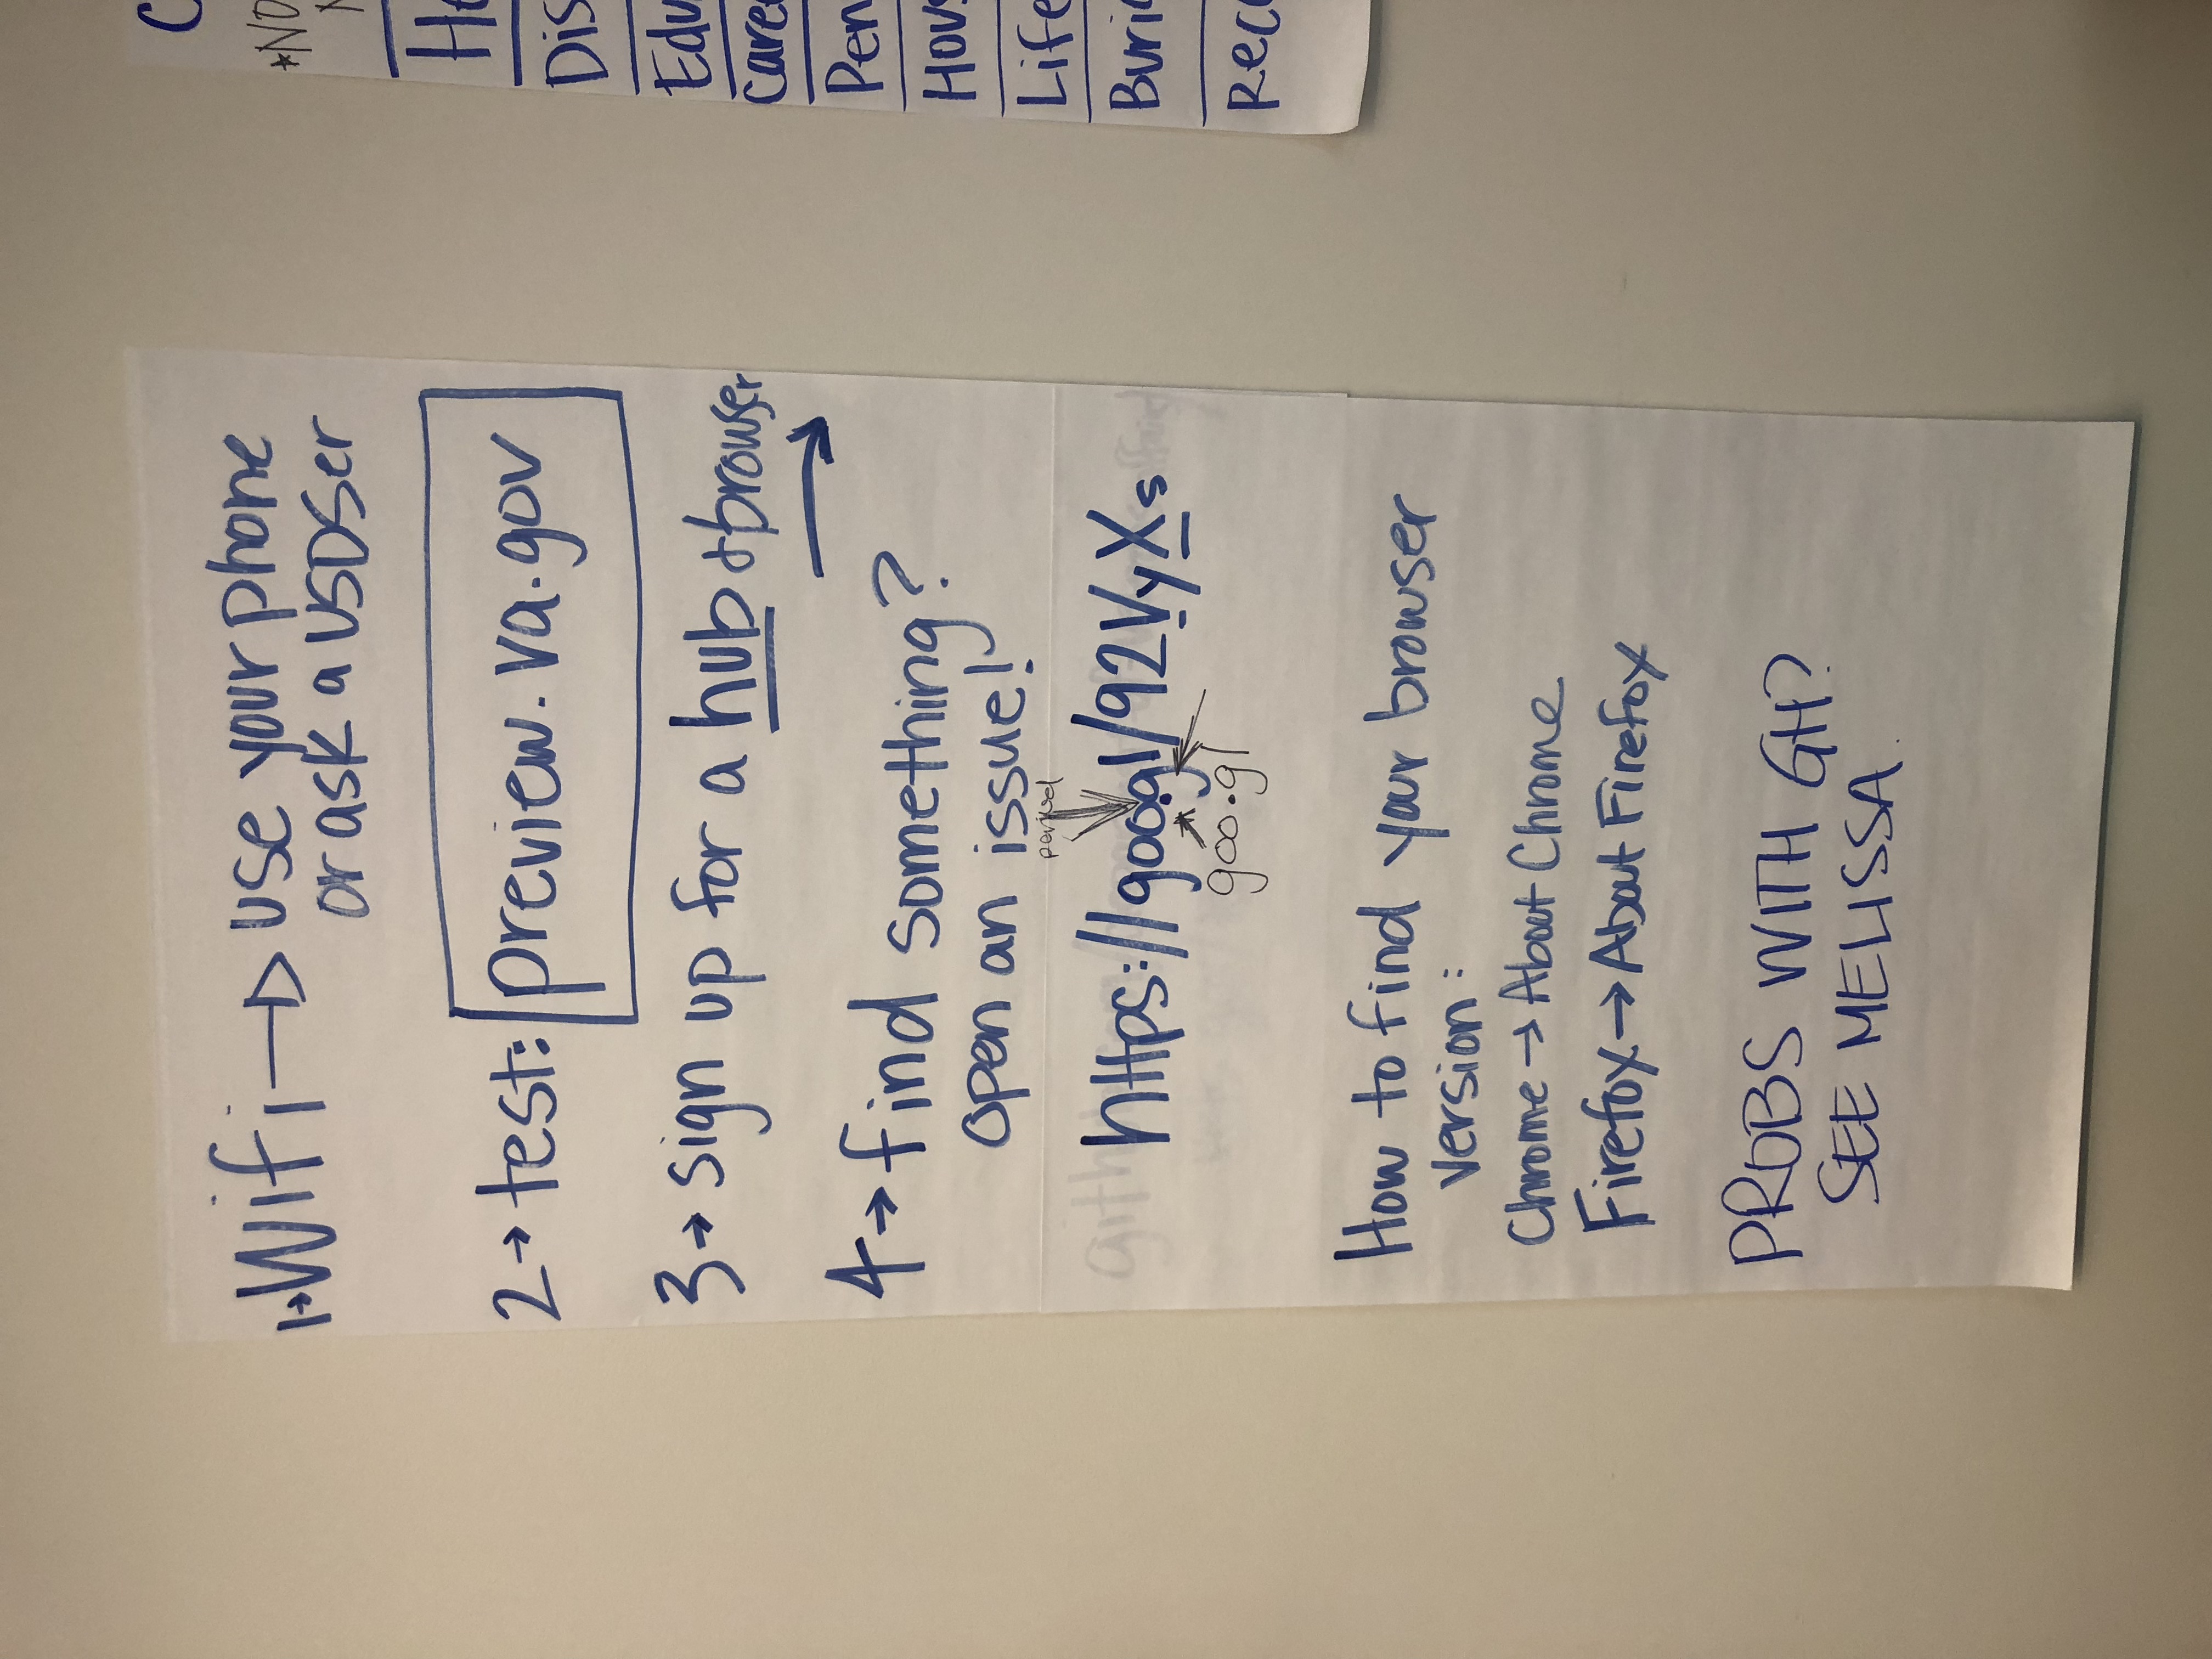 1→ Wifi → use your phone
or ask a USDSer
2→ test: preview.va.gov
3→ sign up for a hub + browser
→
4→ find something?
open an issue!
period
https://goo.gl/92VyXs
goo.gl
How to find your browser
version:
Chrome → About Chrome
Firefox → About Firefox
PROBS WITH GH?
SEE MELISSA.
C
*NO
N
He
Dis
Edu
Care
Pen
Hous
Life
Buria
Reco